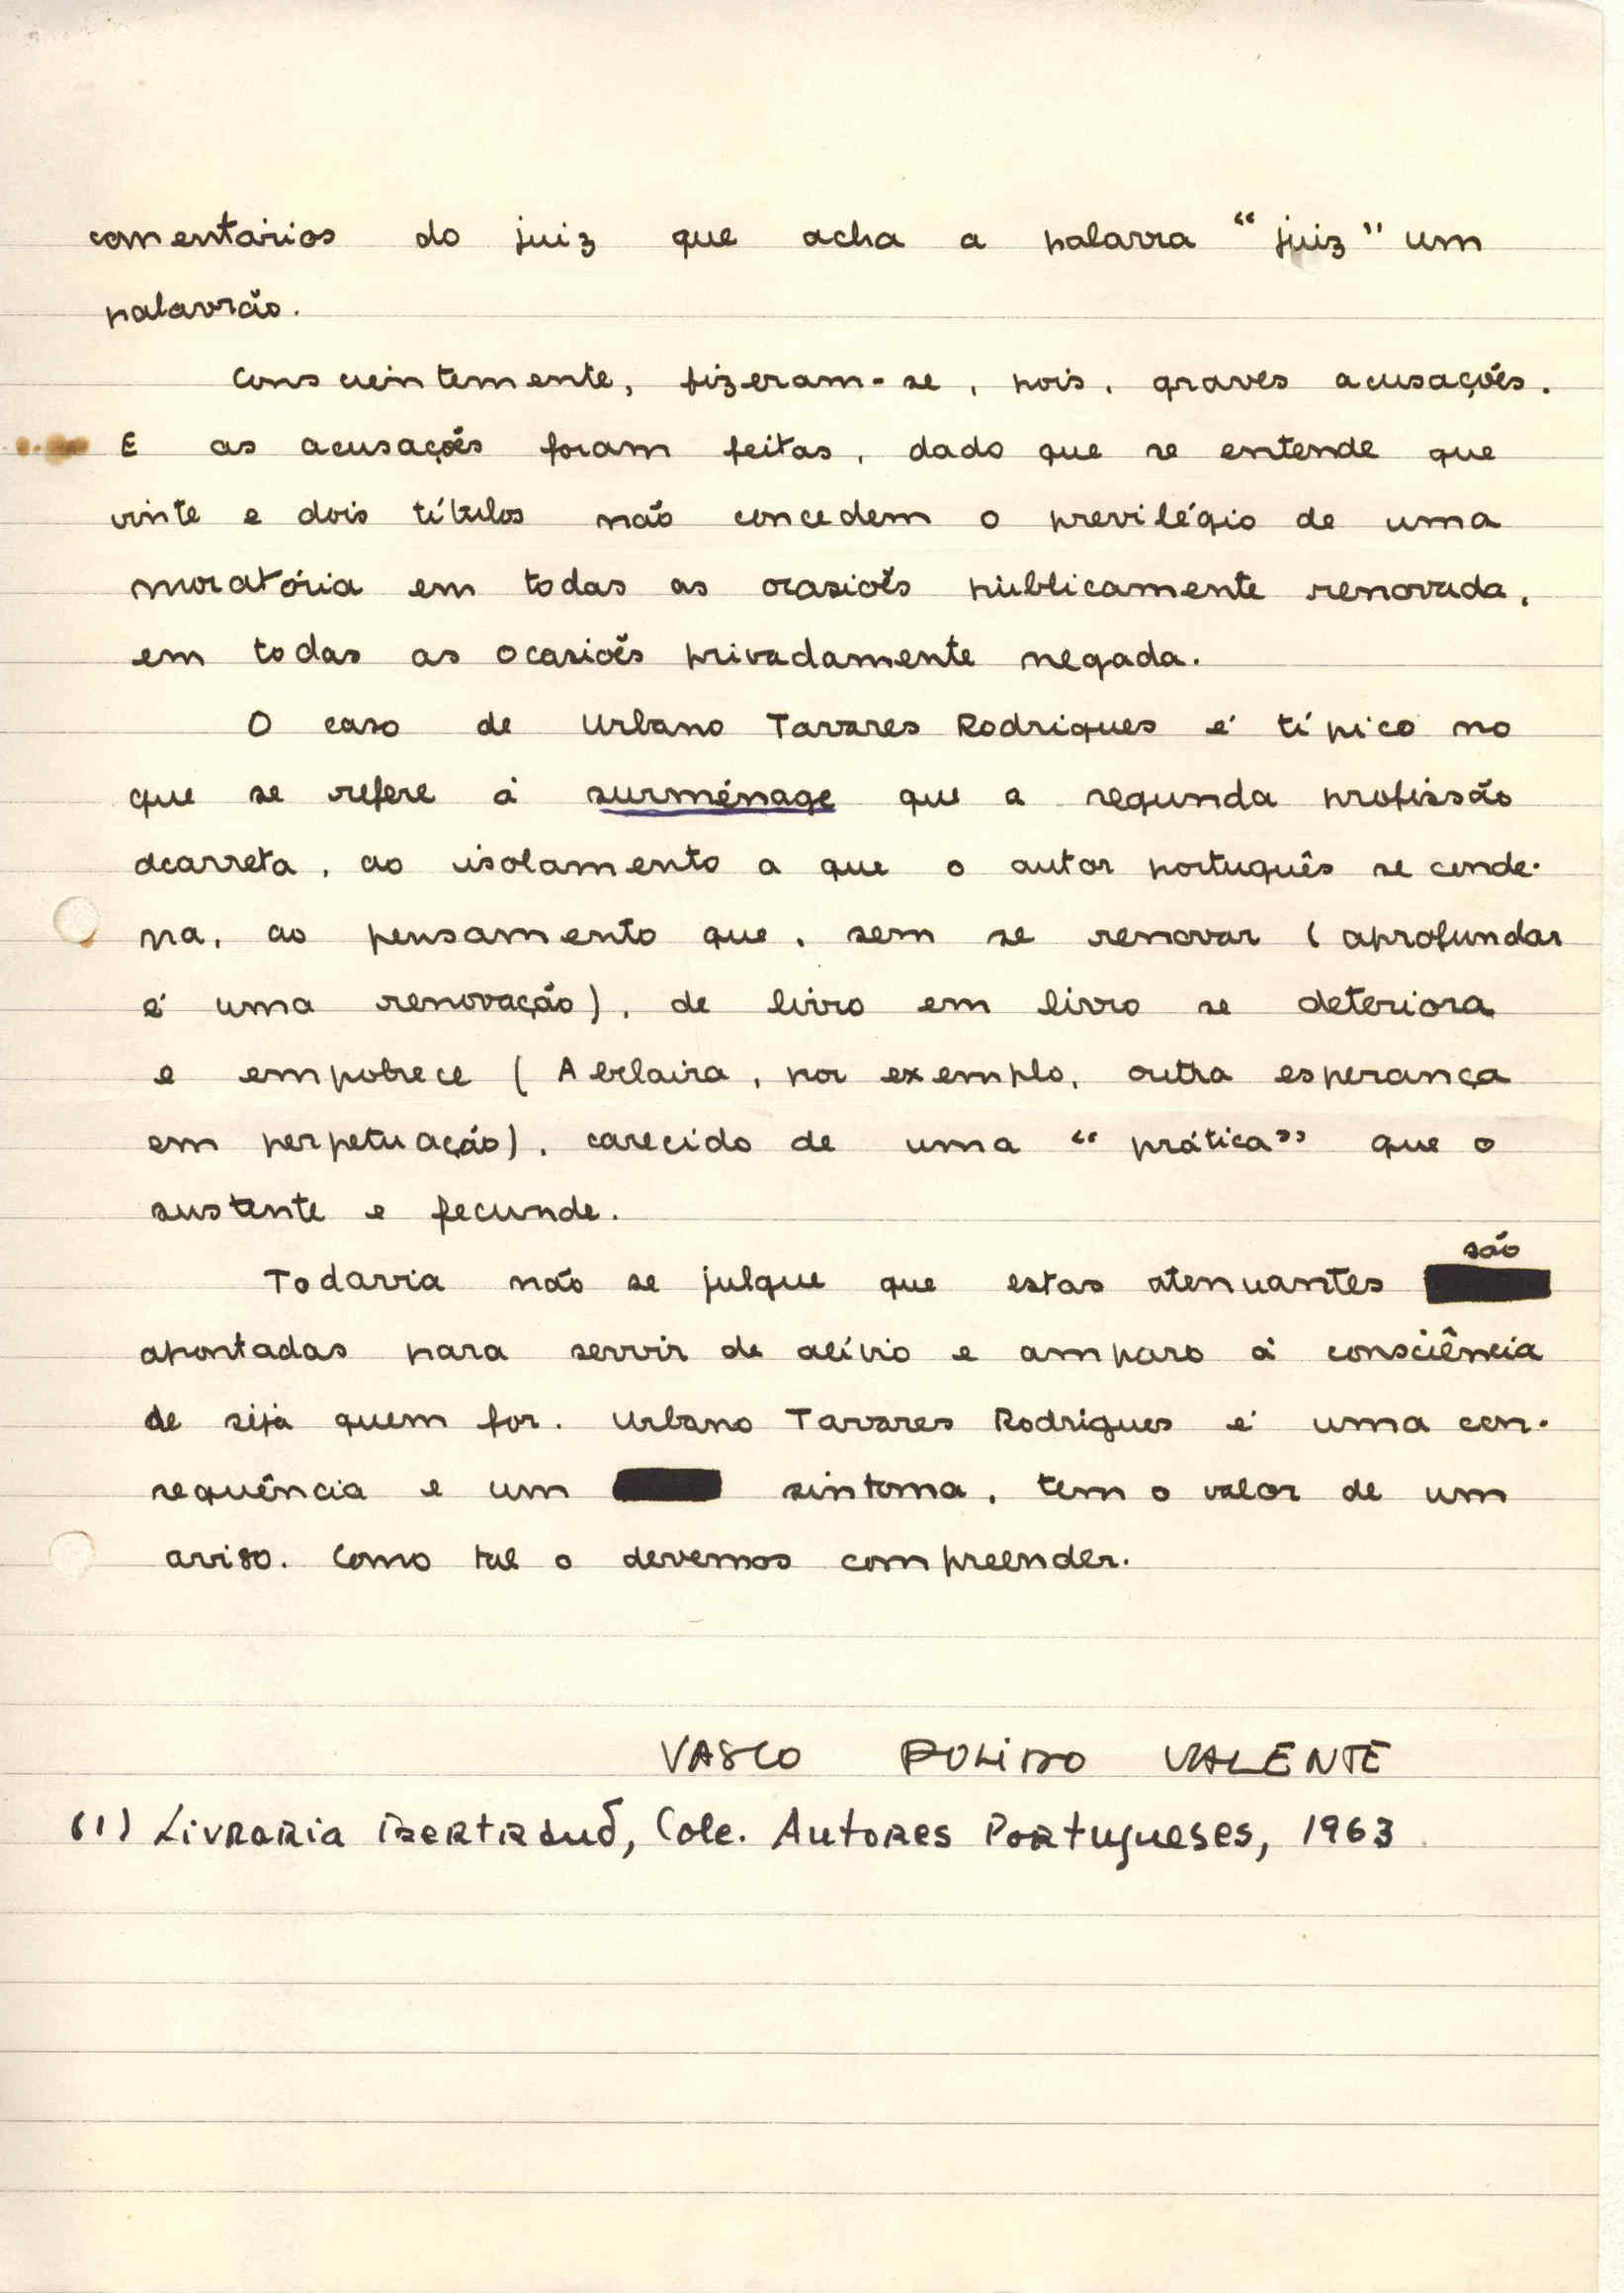 comentários do juiz que acha a palavra "juiz" um
palavrão.
Conscientemente, fizeram-se, pois, graves acusações.
E as acusações foram feitas, dado que se entende que
vinte e dois títulos não concedem o previlégio de uma
moratória em todas as ocasiões públicamente renovada,
em todas as ocasiões privadamente negada.
O caso de Urbano Tavares Rodrigues é típico no
que se refere à surménage que a segunda profissão
acarreta, ao isolamento a que o autor português se conde-
na, ao pensamento que, sem se renovar (aprofundar
é uma renovação), de livro em livro se deteriora
e empobrece (Abelaira, por exemplo, outra esperança
em perpetuação), carecido de uma "prática" que o
sustente e fecunde.
são
Todavia não se julgue que estas atenuantes
apontadas para servir de alívio e amparo à consciência
de seja quem for. Urbano Tavares Rodrigues é uma con-
sequência e um sintoma, tem o valor de um
aviso. Como tal o devemos compreender.
VASCO PULIDO VALENTE
(1) Livraria Bertrand, Cole. Autores Portugueses, 1963